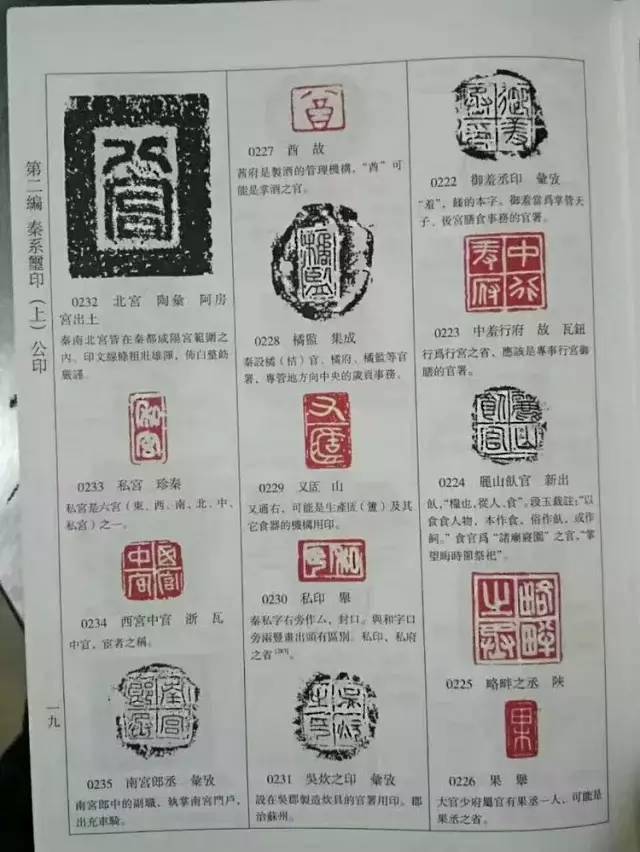 第二編 秦系璽印（上）公印
0222 御羞丞印 彙攷
“羞”，饈的本字。御羞當爲掌管天
子、後宮膳食事務的官署。
0223 中羞行府 故 瓦鈕
行爲行宮之省，應該是專事行宮御
膳的官署。
0224 麗山飤官 新出
飤，“糧也，從人、食”。段玉裁註：“以
食食人物，本作食，俗作飤，或作
飼。”食官爲“諸廟寢園”之官，“掌
望晦時節祭祀”。
0225 略畔之丞 陝
0226 果 舉
大官少府屬官有果丞一人，可能是
果丞之省。
0227 酋 故
酋府是製酒的管理機構，“酋”可
能是掌酒之官。
0228 橘監 集成
秦設橘（桔）官、橘府、橘監等官
署，專管地方向中央的歲貢事務。
0229 又匽 山
又通右，可能是生產匽（簠）及其
它食器的機構用印。
0230 私印 舉
秦私字右旁作厶，封口。與和字口
旁兩豎畫出頭有區別。私印、私府
之省
0231 吳炊之印 彙攷
設在吳郡製造炊具的官署用印。郡
治蘇州。
0232 北宮 陶彙 阿房
宮出土
秦南北宮皆在秦都咸陽宮範圍之
內。印文線條粗壯雄渾，佈白整飭
嚴謹。
0233 私宮 珍秦
私宮是六宮（東、西、南、北、中、
私宮）之一。
0234 西宮中官 浙 瓦
中官，宦者之稱。
0235 南宮郎丞 彙攷
南宮郎中的副職，執掌南宮門戶，
出充車騎。
一九